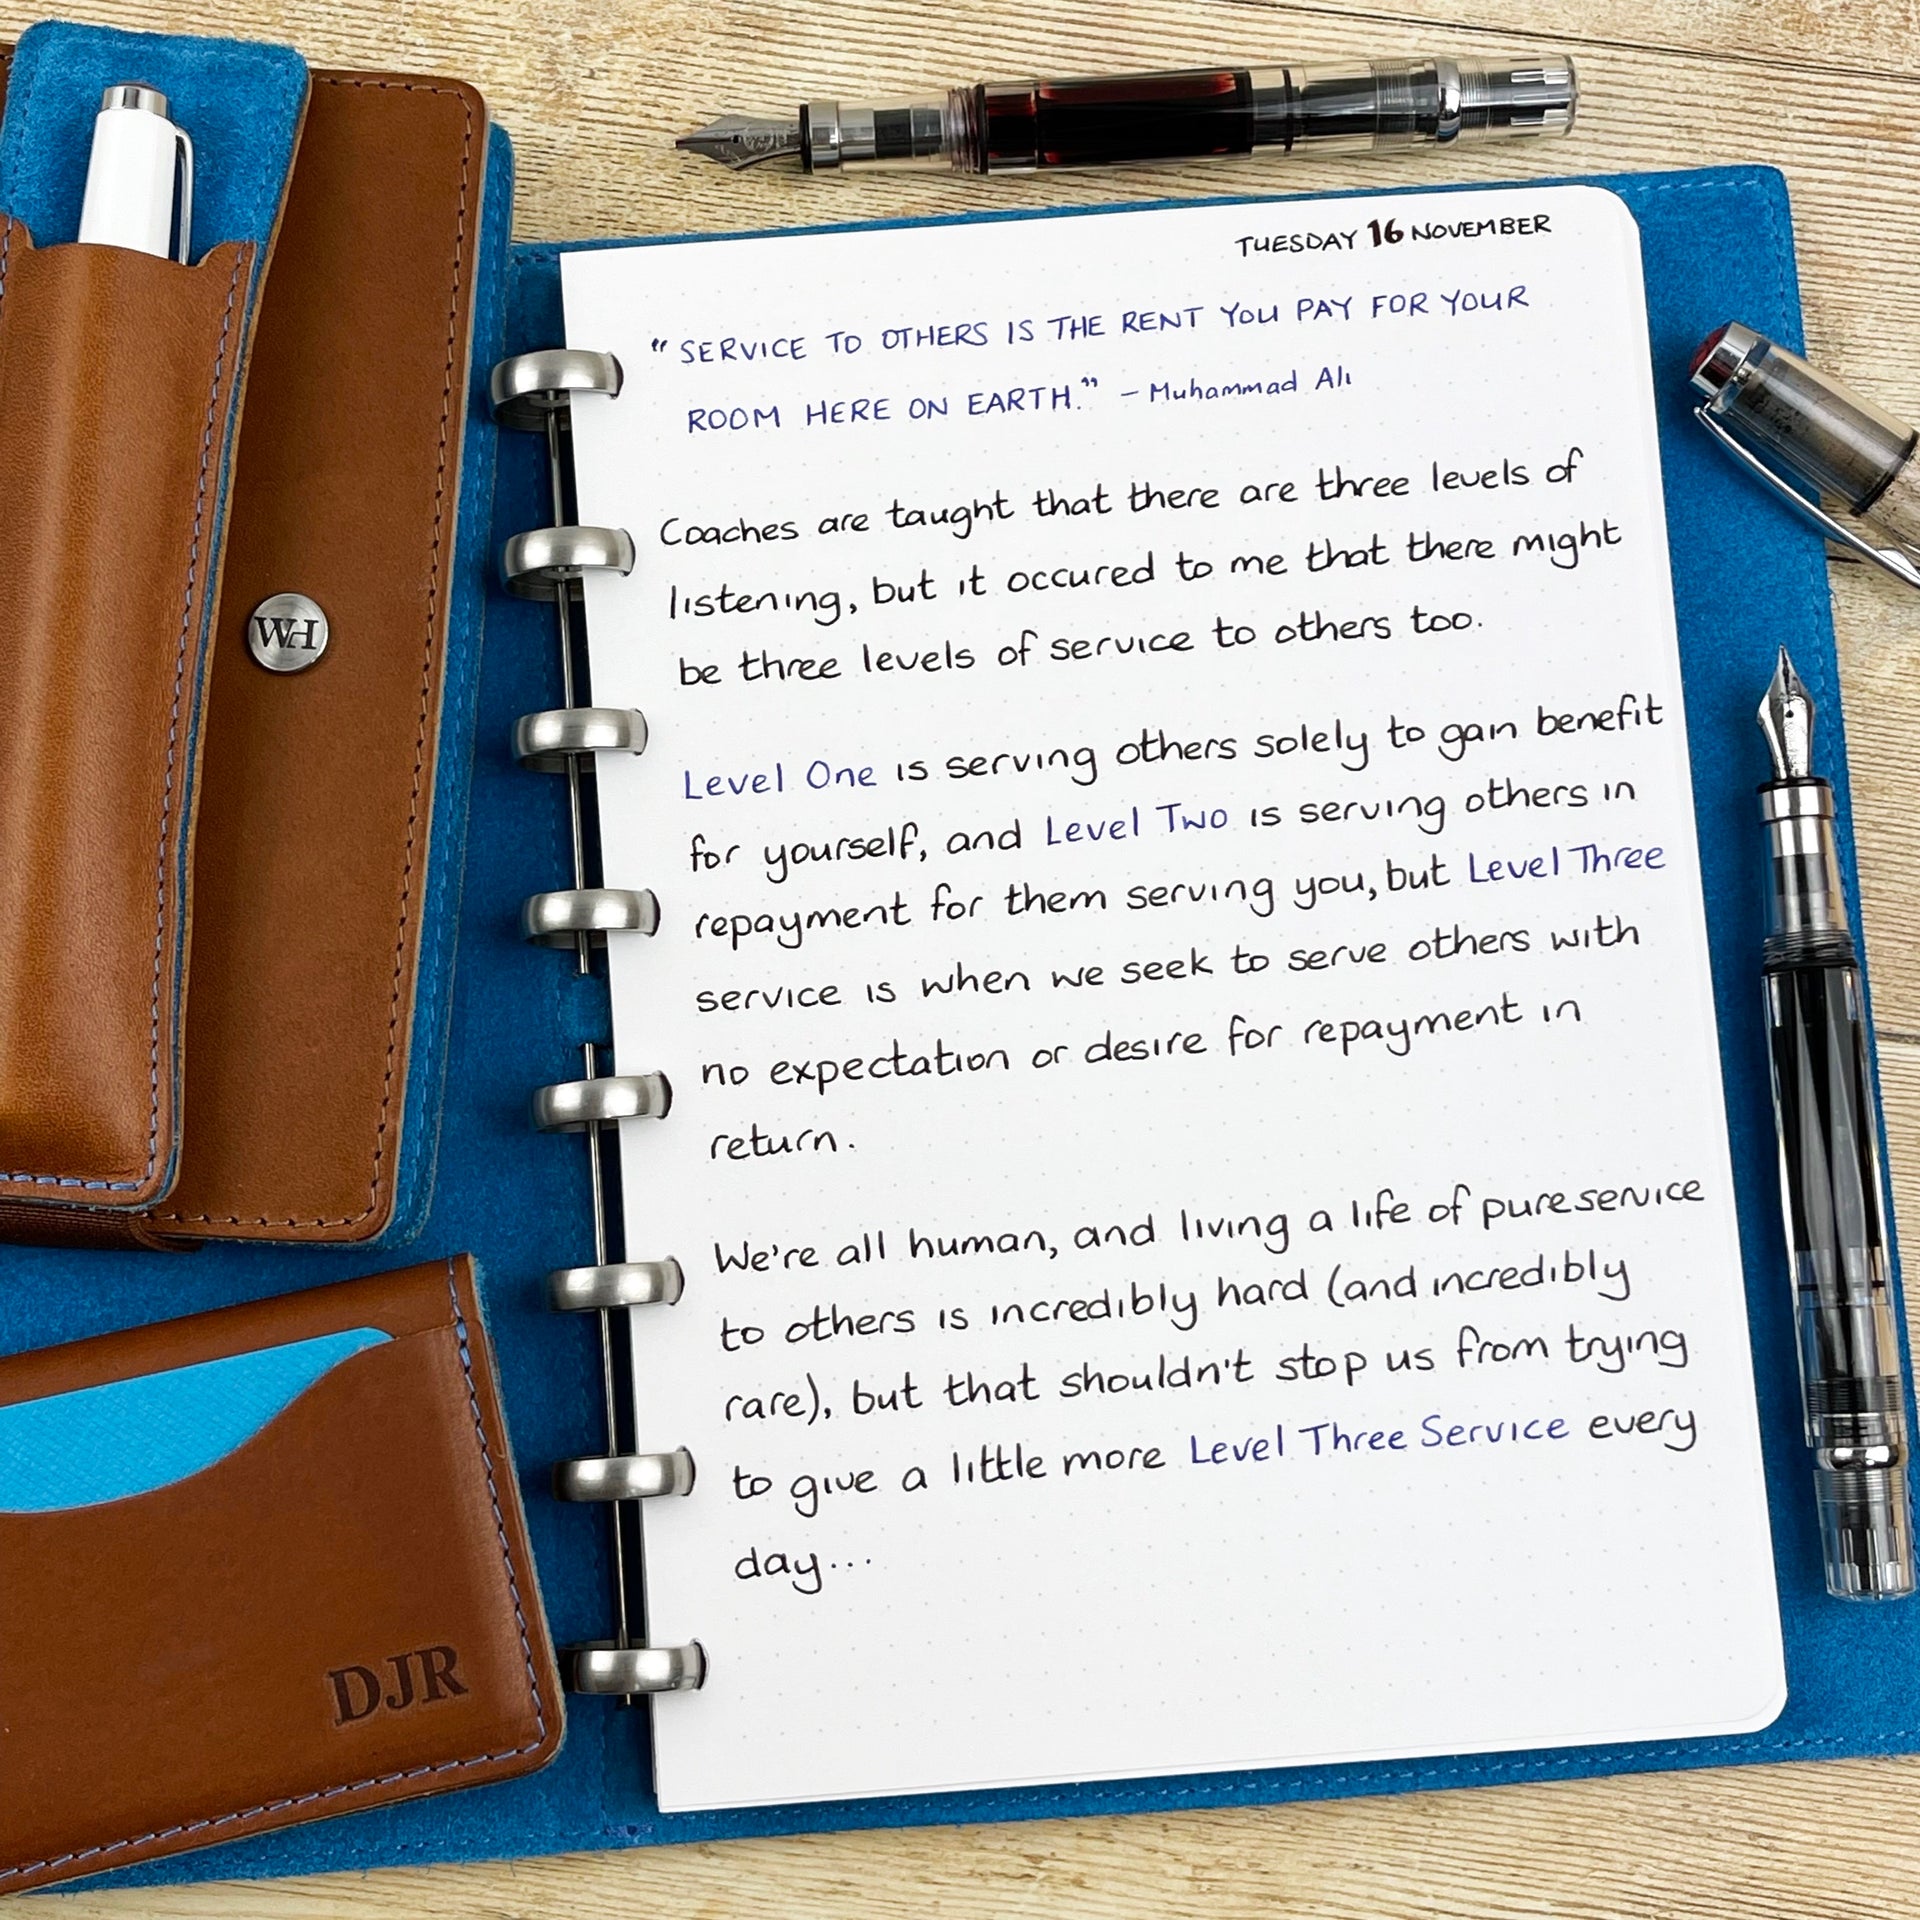 WH
TUESDAY 16 NOVEMBER
"SERVICE TO OTHERS IS THE RENT YOU PAY FOR YOUR
ROOM HERE ON EARTH." – Muhammad Ali
Coaches are taught that there are three levels of
listening, but it occured to me that there might
be three levels of service to others too.
Level One is serving others solely to gain benefit
for yourself, and Level Two is serving others in
repayment for them serving you, but Level Three
service is when we seek to serve others with
no expectation or desire for repayment in
return.
We're all human, and living a life of pure service
to others is incredibly hard (and incredibly
rare), but that shouldn't stop us from trying
to give a little more Level Three Service every
day...
DJR